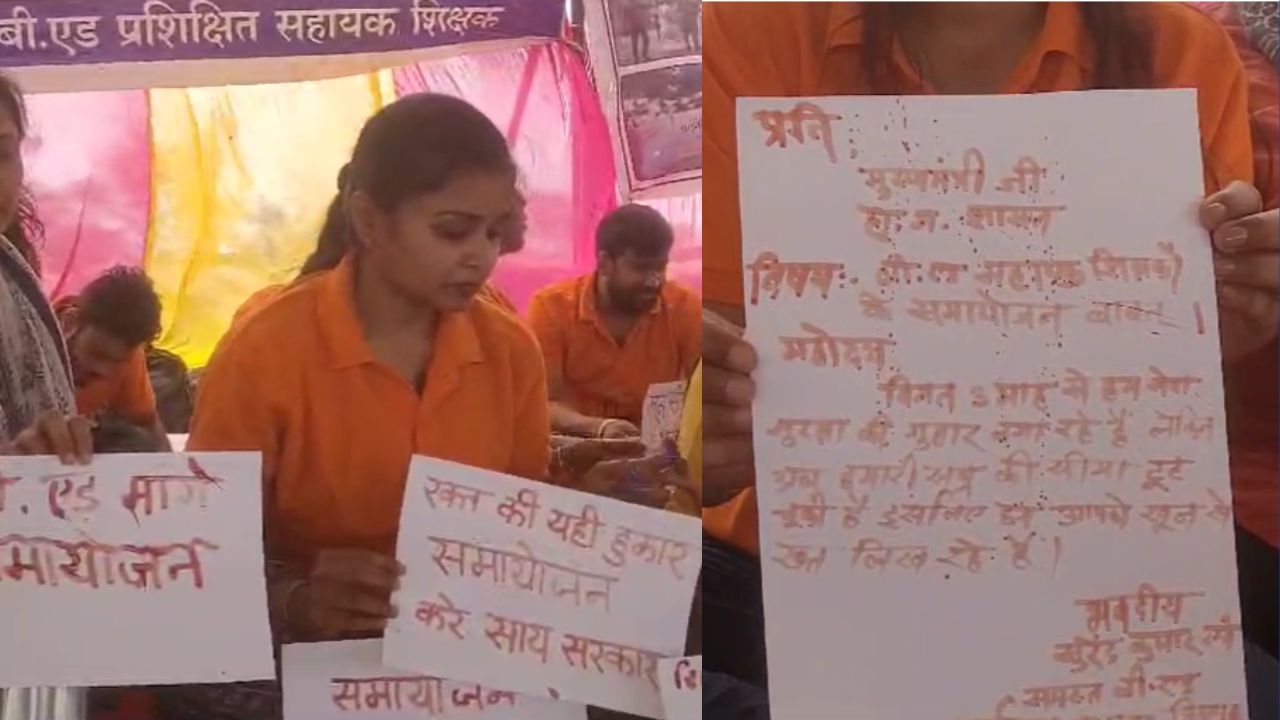 बी.एड प्रशिक्षित सहायक शिक्षक
. एड मांगे
समायोजन
रक्त की यही हुंकार
समायोजन
करे साय सरकार
समायोजन
प्रति,
मुख्यमंत्री जी
छ.ग. शासन
विषय:- बी.एड सहायक शिक्षकों
के समायोजन बाबत् ।
महोदय
विगत 3 माह से हम सेवा
सुरक्षा की गुहार लगा रहे हैं लेकिन
अब हमारी सब्र की सीमा टूट
चुकी है इसलिए हम आपको खून से
खत लिख रहे हैं।
भवदीय
कुमार
समस्त बी.एड